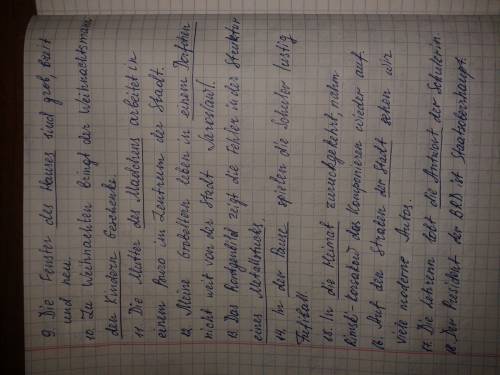 9. Die Fenster des Hauses sind groß, breit
und neu.
10. Zu Weihnachten bringt der Weihnachtsmann
den Kindern Geschenke.
11. Die Mutter des Mädchens arbeitet in
einem Büro im Zentrum der Stadt.
12. Meine Großeltern leben in einem Dorfchen
nicht weit von der Stadt Jaroslawl.
13. Das Rontgenbild zeigt die Fehler in der Struktur
eines Metallstücks.
14. In der Pause spielen die Schuler lustig
Fußball
15. In die Heimat zurückgekehrt, nahm
Rimski-Korsakow das Komponieren wieder auf.
16. Auf den Straßen der Stadt sehen wir
viele moderne Autos.
17. Die Lehrerin lobt die Antwort der Schulerin
18. Der President der BRD ist Staatsoberhaupt.